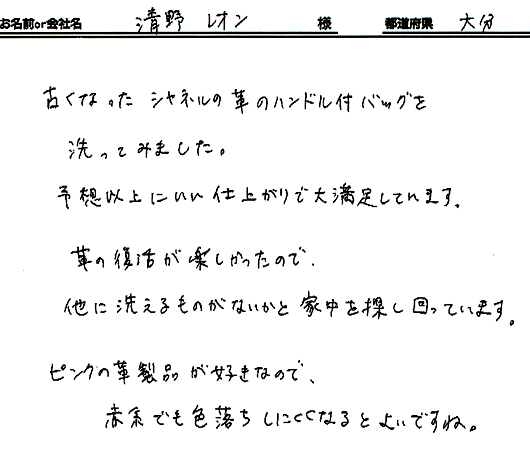 お名前or会社名 清野 レオン 様 都道府県 大分
古くなった シャネルの革のハンドル付バッグを
洗ってみました。
予想以上にいい仕上がりで大満足してます。
革の復活が楽しかったので、
他に洗えるものがないかと家中を探し回っています。
ピンクの革製品が好きなので、
赤系でも色落ちしにくくなるとよいですね。